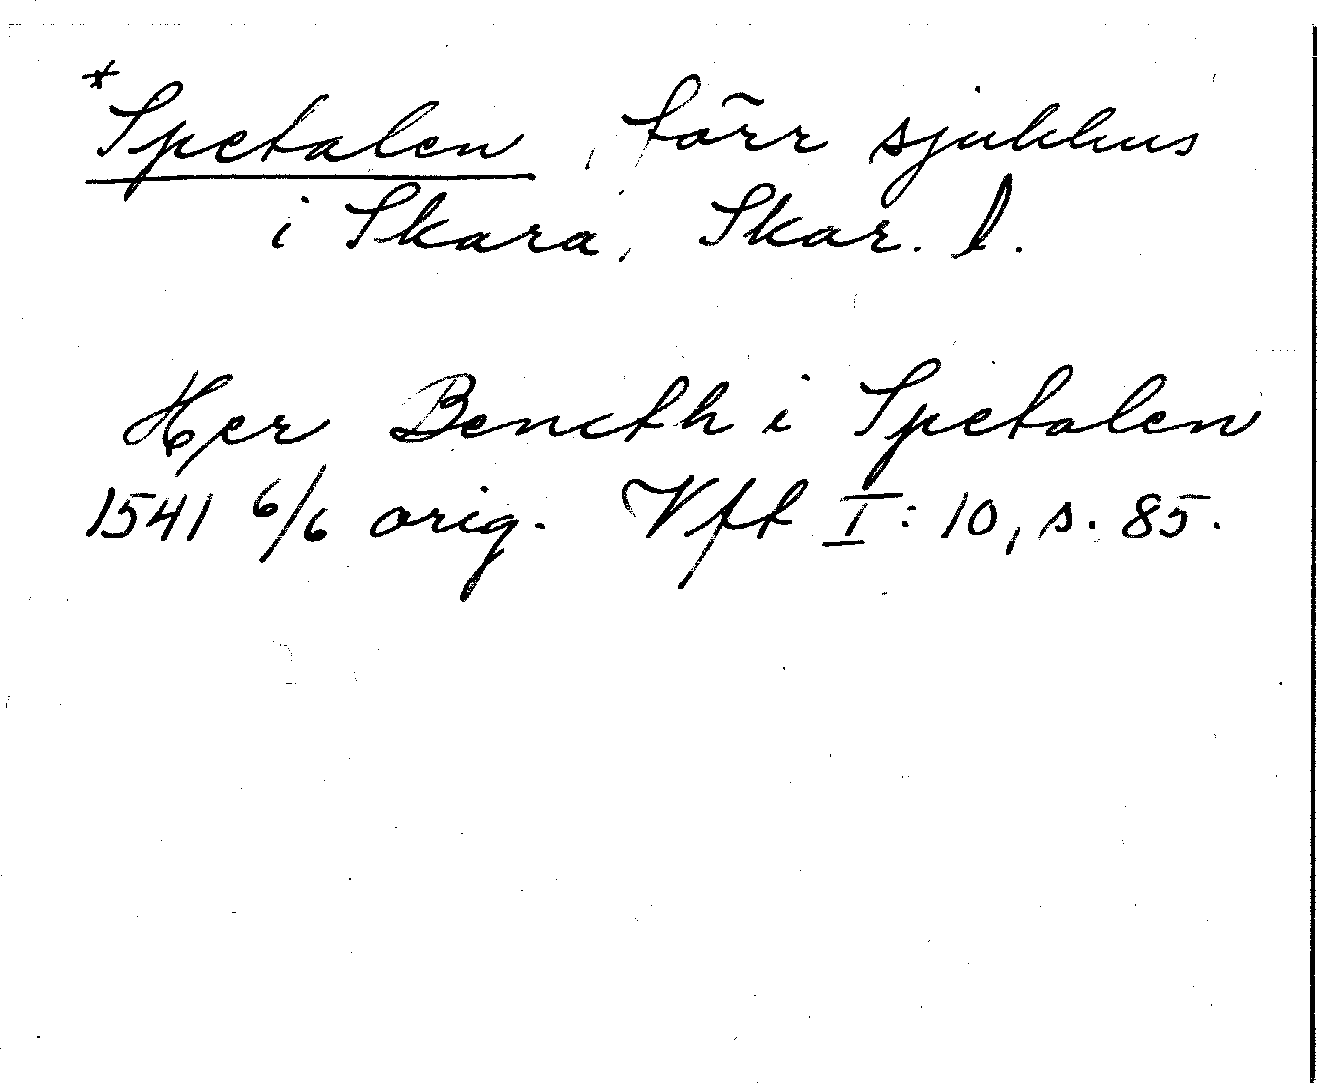 *Spetalen, förr sjukhus
i Skara, Skar. l.
Her Bencth i Spetalen
1541 6/6 orig. Vft I: 10, s. 85.